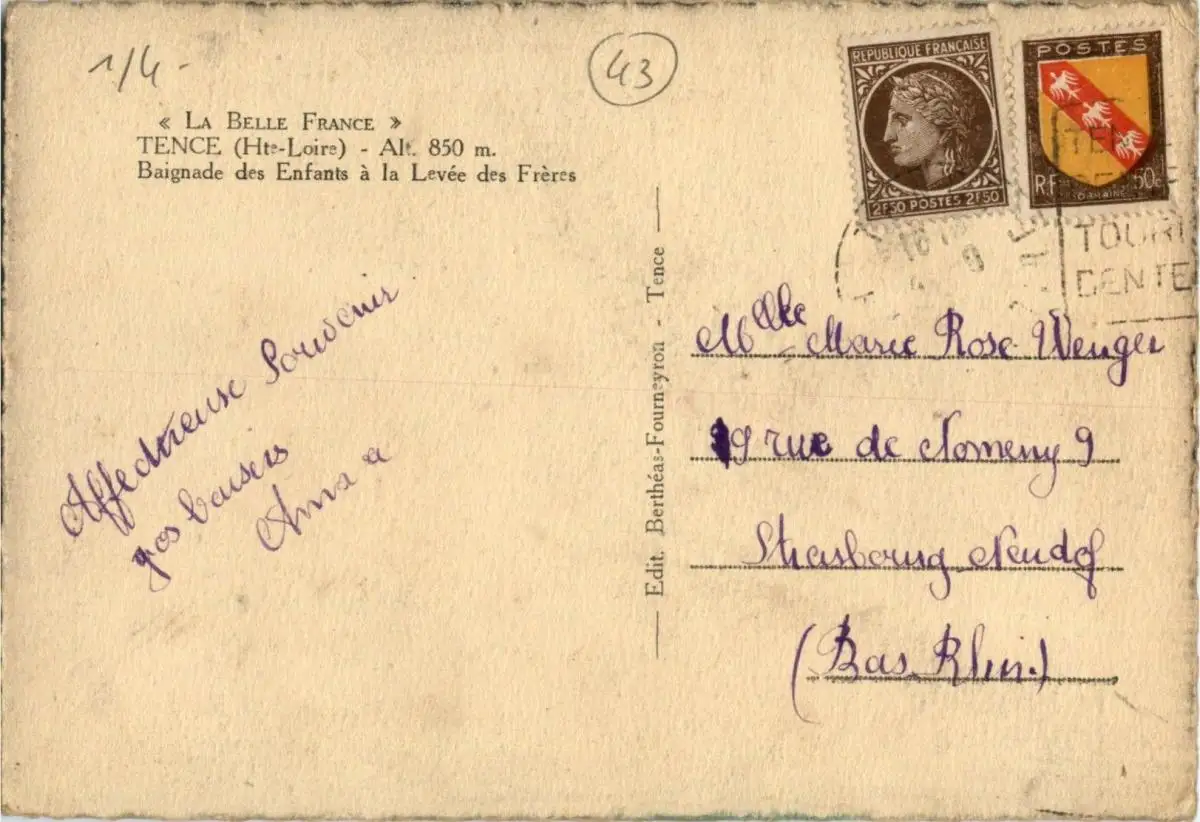 1/4 -
43
« LA BELLE FRANCE »
TENCE (Hte-Loire) - Alt. 850 m.
Baignade des Enfants à la Levée des Frères
REPUBLIQUE FRANÇAISE
2F50 POSTES 2F50
POSTES
RF 50c
LORRAINE
TOURI
CENTE
Affectueuse Souvenir
gos baisers
Edit. Berthéas-Fourneyron - Tence
Mlle Marie Rose Wenger
9 rue de Nomeny 9
Strasbourg Neudof
(Bas Rhin.)